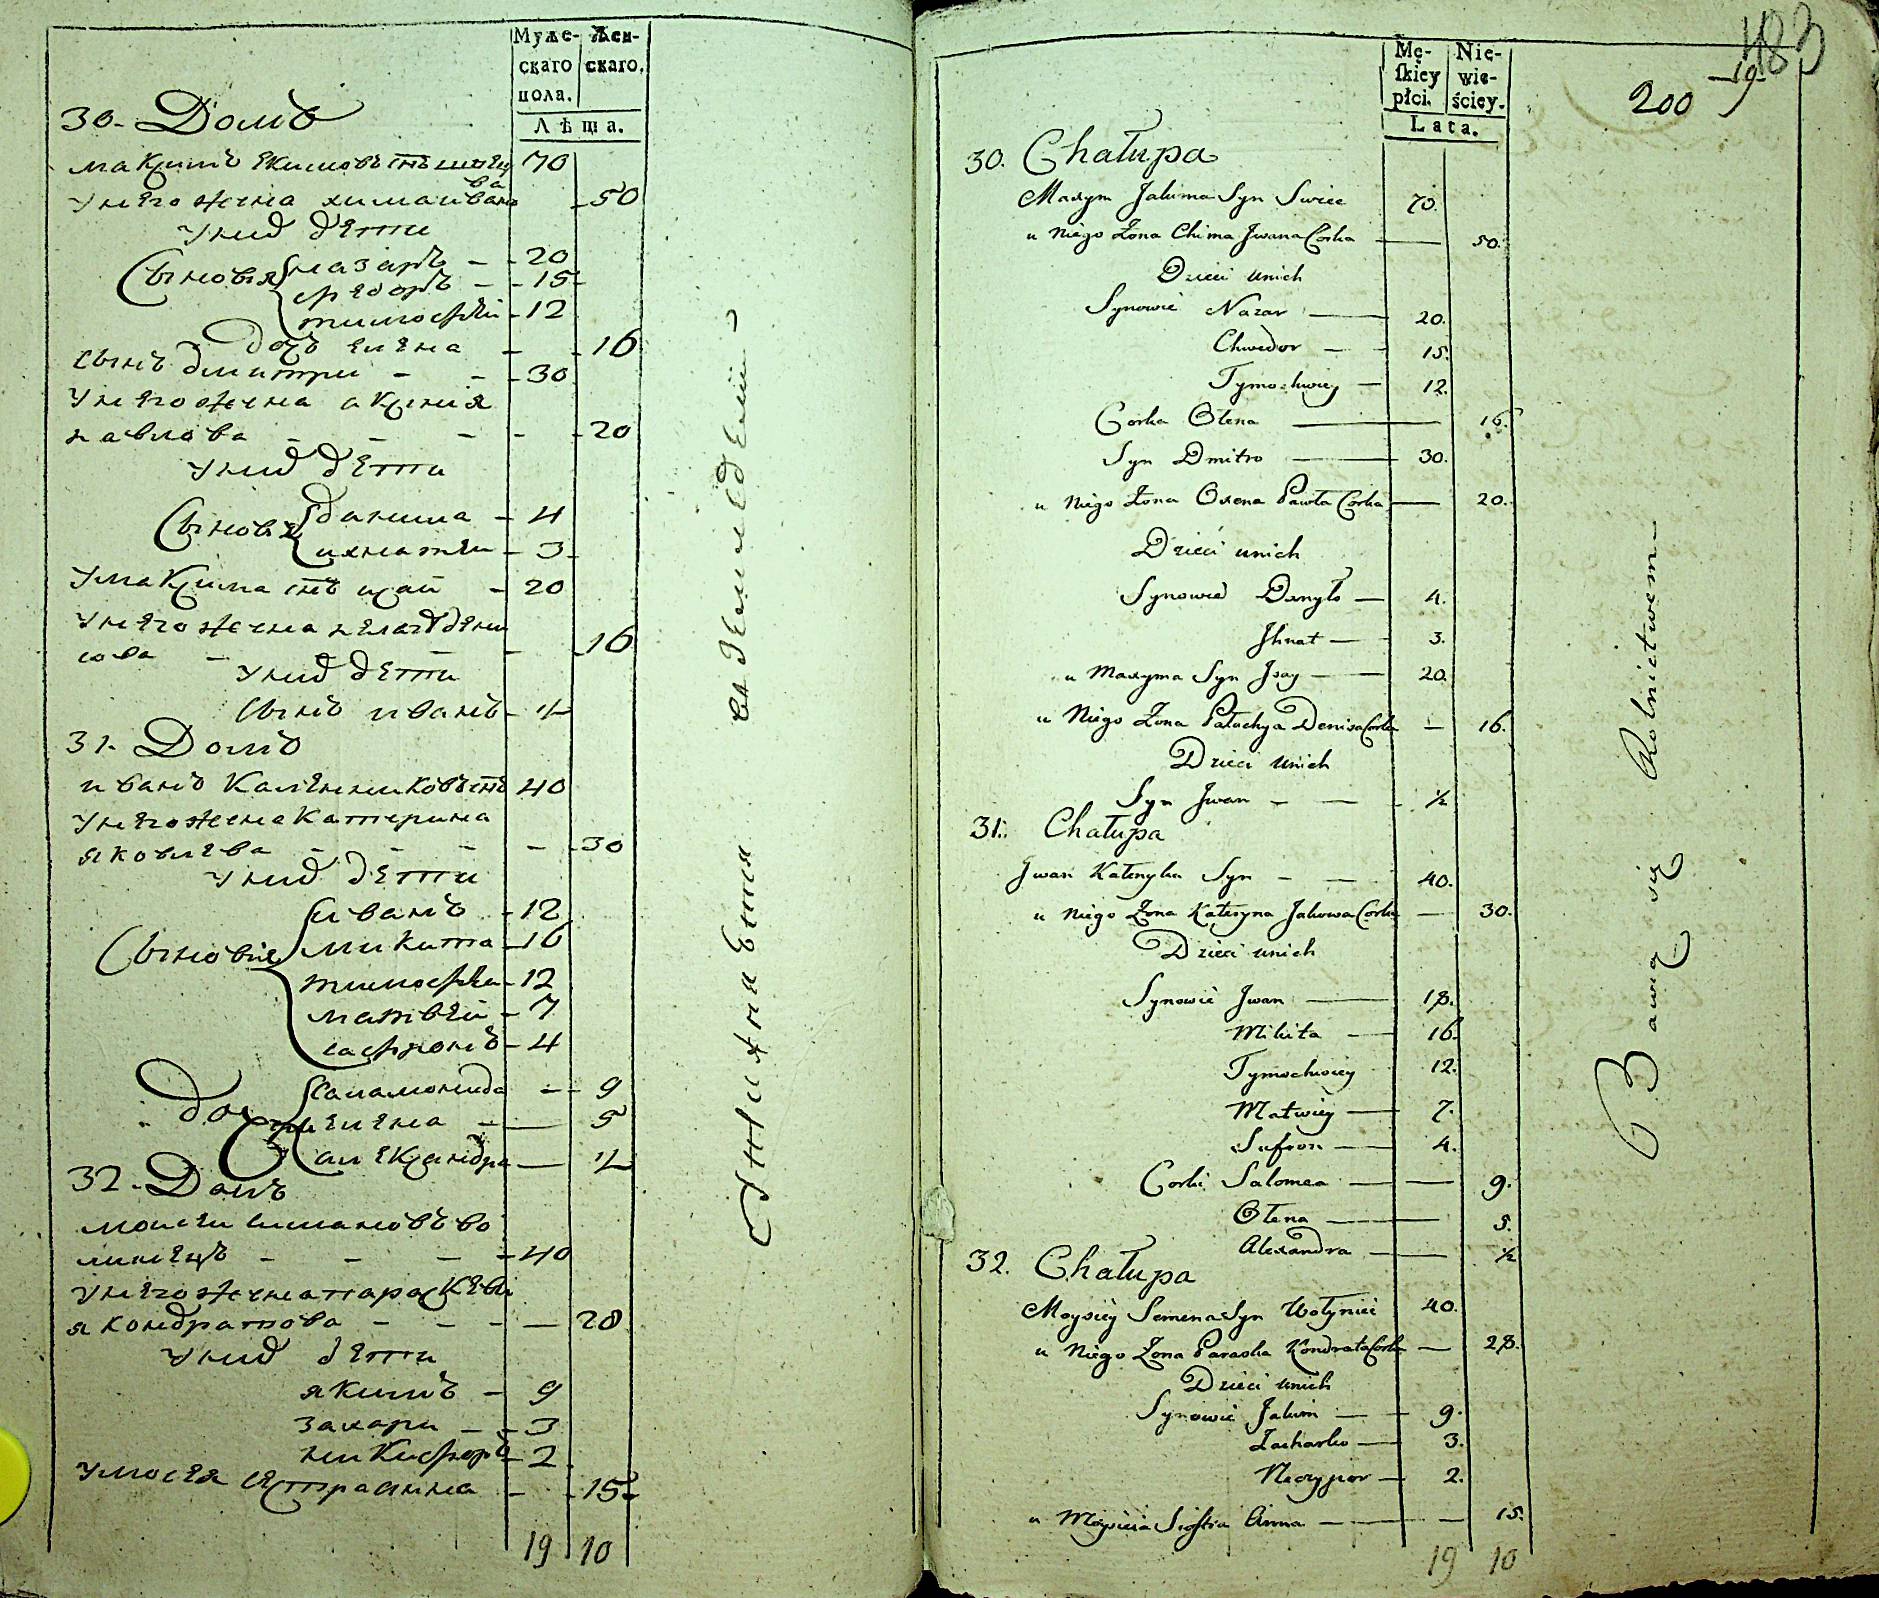 Муже-
скаго
пола.
Жен-
скаго.
Лѣта.
30. Домъ
макSимъ Якимовъ снъ швец 70
У него жена хима ива
нова 50
У них дети
Сыновья назаръ 20
федоръ 15
тимофей 12
дочь елена 16
сынъ дмитри 30
У него жена аксинья
павлова 20
У них дети
Сыновья данила 4
игнатей 3
У максима снъ исай 20
У него жена пелагея дени
сова 16
У них дети
Сынъ иванъ ½
31. Домъ
иванъ Каленниковъ снъ 40
У него жена Катерина
яковлева 30
У них дети
Сыновья иванъ 12
микита 16
тимофей 12
матвей 7
сафронъ 4
дочери саламонида 9
елена 5
александра ½
32. Домъ
моисеи симановъ во
линецъ 40
У него жена параскеви
я кондратова 28
У них дети
якимъ 9
захари 3
никифоръ 2
У мосея сестра анна 15
19 10
183
200
Mę-
skiey
płci.
Nie-
wie-
ściey.
Lata.
30. Chałupa
Maxym Jakima Syn Swiec 70.
u Niego Żona Chima Jwana Corka 50.
Dzieci unich
Synowie Nazar 20.
Chwedor 15.
Tymochwiey 12.
Corka Olena 16.
Syn Dmitro 30.
u Niego Żona Oxena Pawła Corka 20.
Dzieci unich
Synowie Danyło 4.
Jhnat 3.
u Maxyma Syn Jsay 20.
u Niego Żona Pałachya Denisa Corka 16.
Dzieci unich
Syn Jwan ½
31. Chałupa
Jwan Kałenyka Syn 40.
u Niego Żona Kateryna Jakowa Corka 30.
Dzieci unich
Synowie Jwan 18.
Mikita 16.
Tymochwiey 12.
Matwiey 7.
Safron 4.
Corki Salomea 9.
Olena 5.
Alexandra ½
32. Chałupa
Moysiey Semena Syn Wołyniec 40.
u Niego Żona Paraska Kondrata Corka 28.
Dzieci unich
Synowie Jakim 9.
Zacharko 3.
Neczypor 2.
u Moysieia Siostra Anna 15.
19 10
Bawią się Rolnictwem